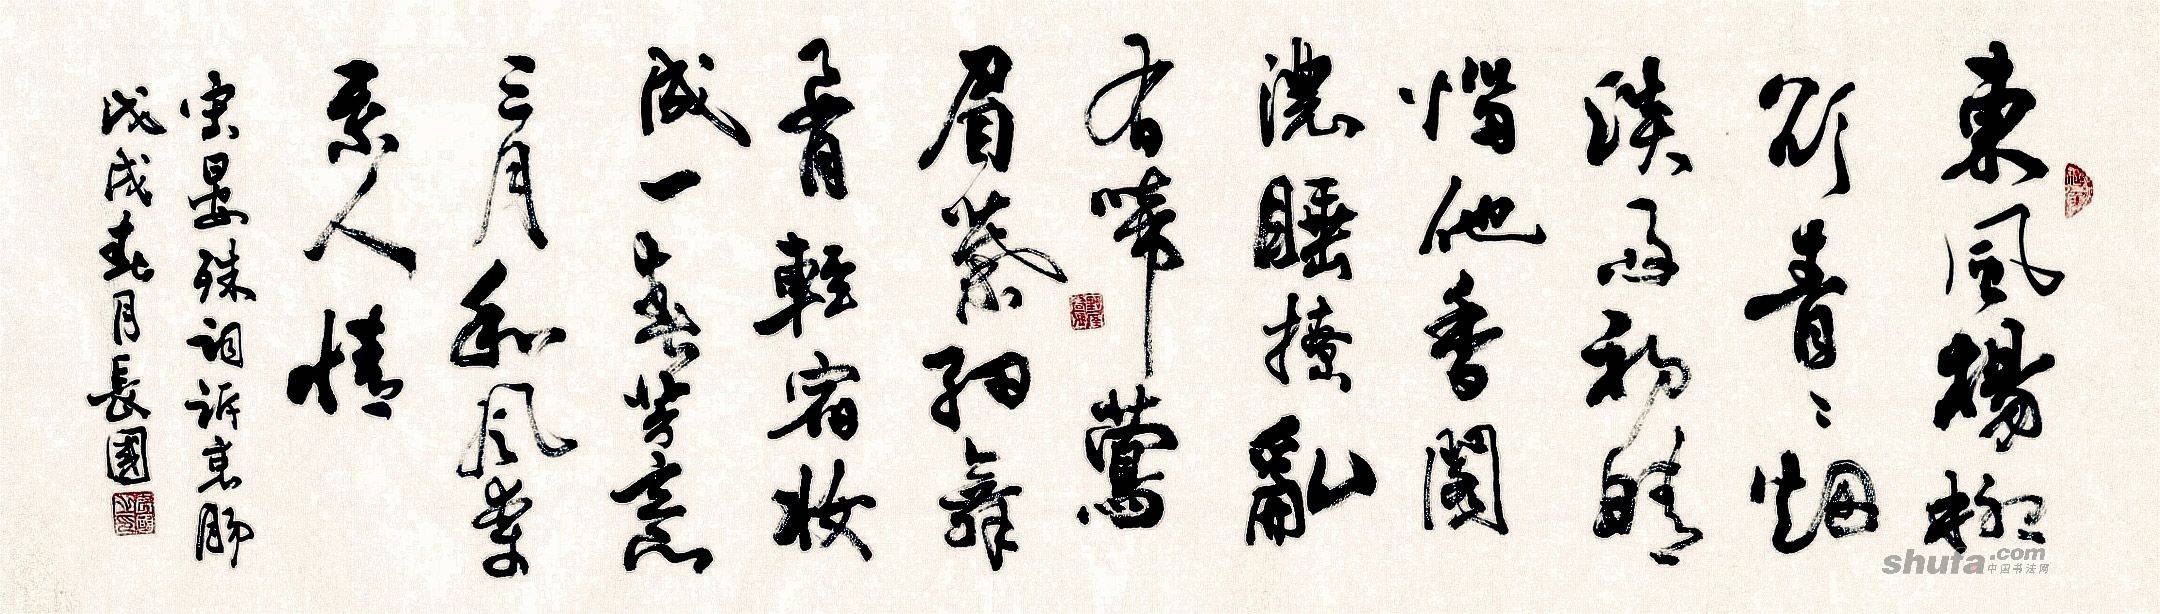 東風楊柳
欲青々烟
淡雨初晴
惱他香閣
濃睡撩亂
有啼鶯
眉葉細舞
腰輕宿妝
成一春芳意
三月和風牽
系人情
宋晏殊詞訴衷腸
戊戌春月長國
shufa.com
中国书法网